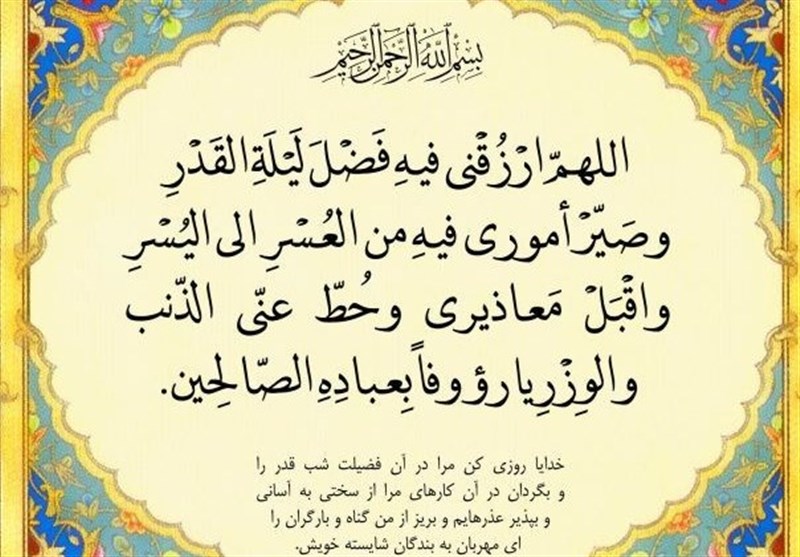 بِسْمِ اللَّهِ الرَّحْمٰنِ الرَّحِيْمِ
اللهمّ ارْزُقْنی فیهِ فَضْلَ لَیْلَةِ القَدْرِ
وصَیّرْ أموری فیهِ من العُسْرِ الی الیُسْرِ
واقْبَلْ مَعاذیری وحُطّ عنّی الذّنب
والوِزْرِ یا رؤوفاً بِعبادِهِ الصّالِحین.
خدایا روزی کن مرا در آن فضیلت شب قدر را
و بگردان در آن کارهای مرا از سختی به آسانی
و بپذیر عذرهایم و بریز از من گناه و بارگران را
ای مهربان به بندگان شایسته خویش.